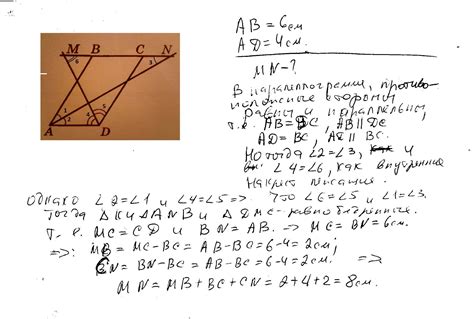 M B C N
6 3
1 5
2 4
A D
AB = 6см
AD = 4см.
MN - ?
В параллелограмме, противо-
положные стороны
равны и параллельны,
т.е. AB = DC, AB || DC
AD = BC, AD || BC.
Но тогда ∠2 = ∠3, как и
∠4 = ∠6, как внутренние
накрест лежащие.
Однако ∠2 = ∠1 и ∠4 = ∠5 => то ∠6 = ∠5 и ∠1 = ∠3.
Тогда △ ANB и △ DMC - равнобедренные.
т. е. MC = CD и BN = AB. => MC = BN = 6см.
=> MB = MC - BC = AB - BC = 6 - 4 = 2см;
CN = BN - BC = AB - BC = 6 - 4 = 2см. =>
MN = MB + BC + CN = 2 + 4 + 2 = 8см.